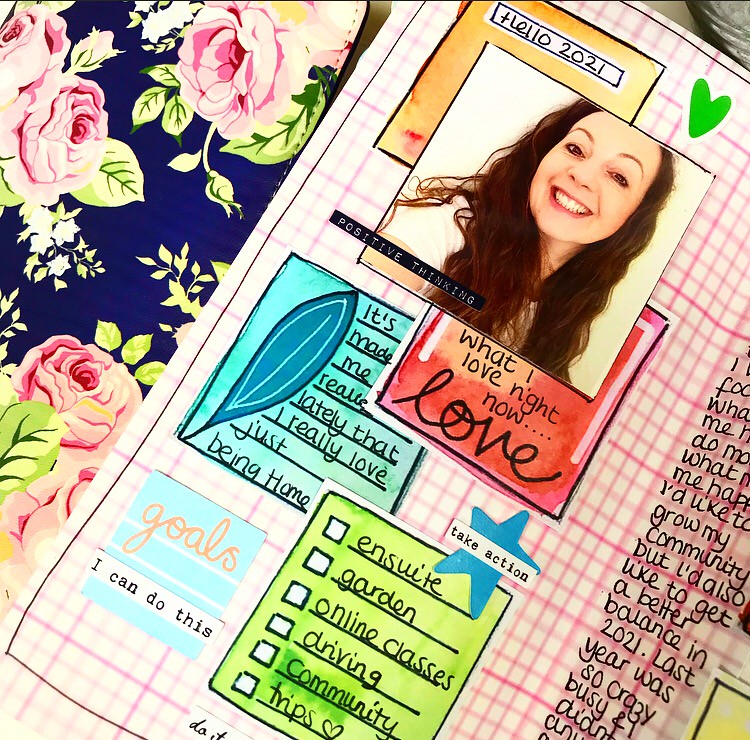 Hello 2021
POSITIVE THINKING
It's
made
me
lately that
I really love
just
being Home
what I
love right
now....
love
goals
I can do this
take action
ensuite
garden
online classes
driving
Community
trips
I
do
what
I'd like to
grow my
community
but I'd also
like to get
a better
balance in
2021. Last
year was
so crazy
busy & I
didn't